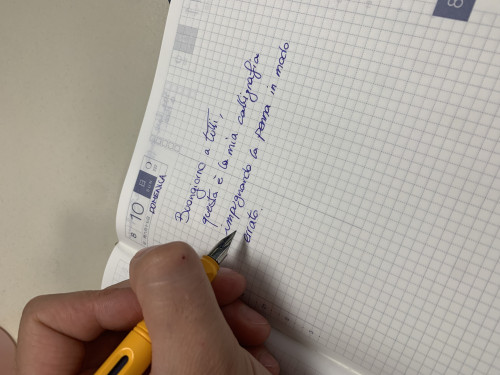 10
DOMENICA
Buongiorno a tutti,
questa è la mia calligrafia
impugnando la penna in modo
errato.
8